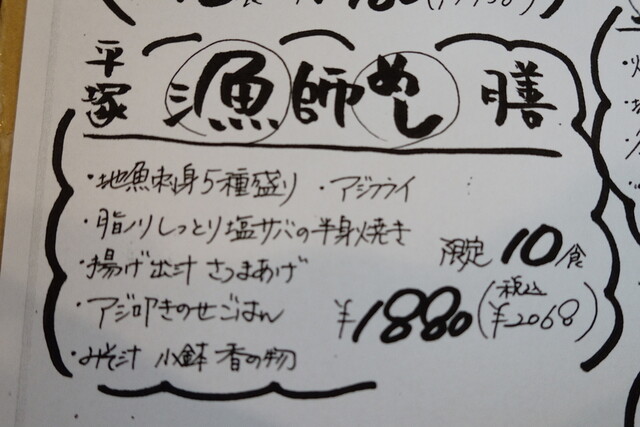 平塚 漁師めし膳
・地魚刺身5種盛り ・アジフライ
・脂ノリしっとり塩サバの半身焼き
・揚げ出汁 さつまあげ
・アジ叩きのせごはん
・みそ汁 小鉢 香の物
限定 10食
¥1880(税込¥2068)